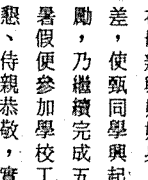 差，使甄同學興起
勵，乃繼續完成五
暑假便參加學校工
懇、侍親恭敬，實